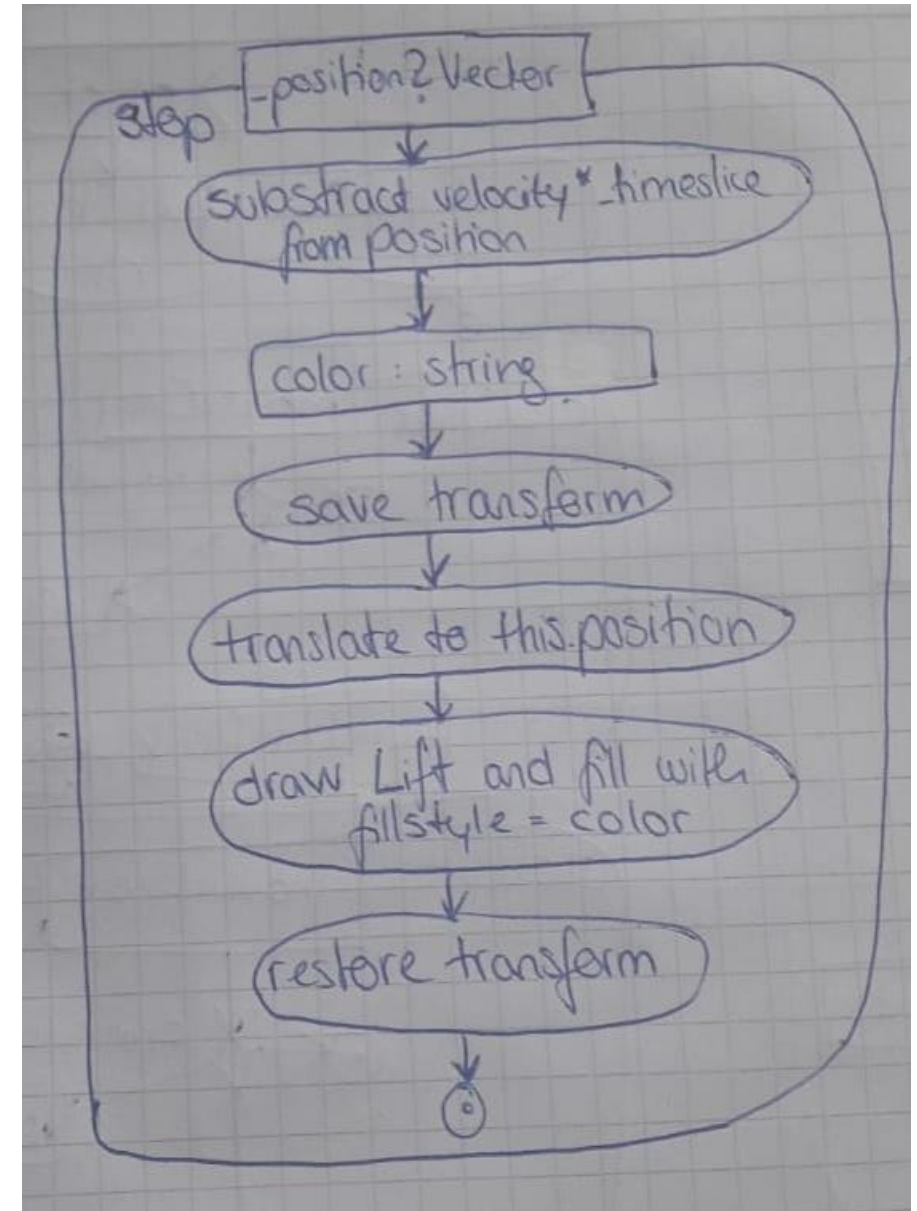 -position?Vector
step
substract velocity*_timeslice
from position
color : string
save transform
translate to this.position
draw Lift and fill with
fillstyle = color
restore transform